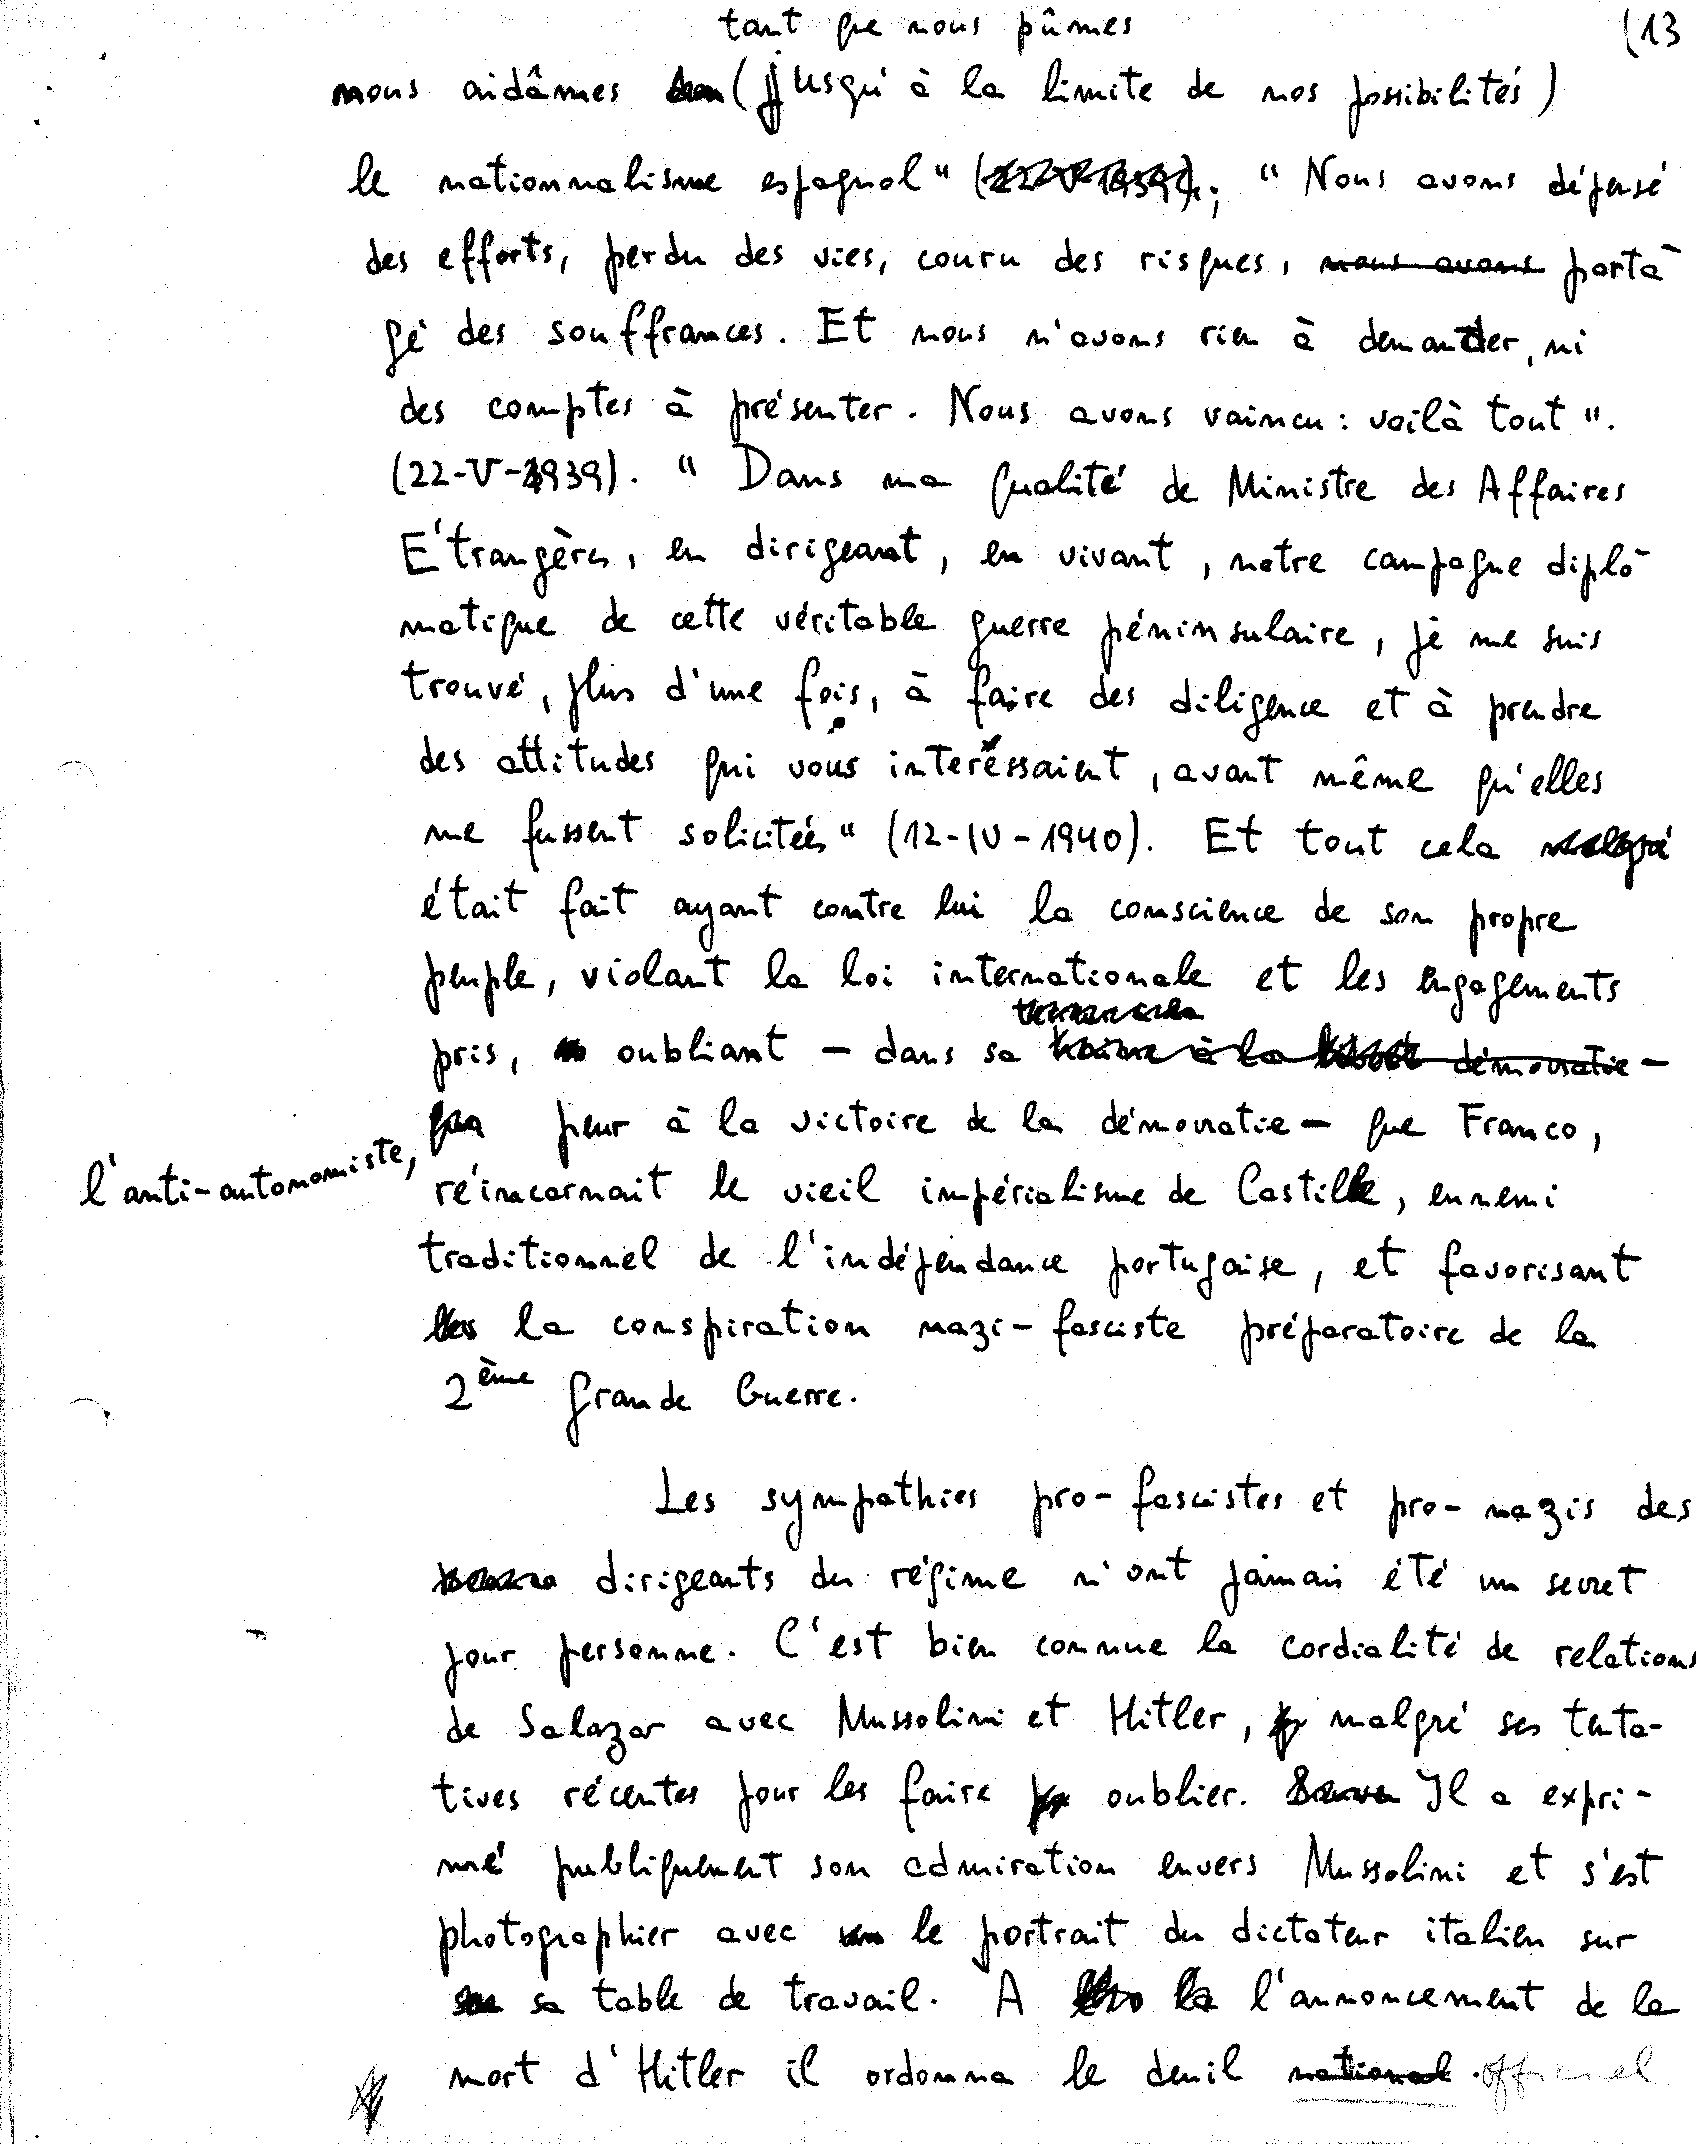 tant que nous pûmes
(13
nous aidâmes (jusqu'à à la limite de nos possibilités)
le nationnalisme espagnol" ; "Nous avons dépensé
des efforts, perdu des vies, couru des risques, nous avons parta-
gé des souffrances. Et nous n'avons rien à demander, ni
des comptes à présenter. Nous avons vaincu : voilà tout".
(22-V-1939). "Dans ma qualité de Ministre des Affaires
Étrangères, en dirigeant, en vivant, notre campagne diplo-
matique de cette véritable guerre péninsulaire, je me suis
trouvé, plus d'une fois, à faire des diligence et à prendre
des attitudes qui vous interessaient, avant même qu'elles
me fussent solicitées" (12-IV-1940). Et tout cela malgré
était fait ayant contre lui la conscience de son propre
peuple, violant la loi internationale et les engagements
pris, oubliant – dans sa haine à la démocratie –
peur à la victoire de la démocratie – que Franco,
l'anti-autonomiste,
réincarnait le vieil impérialisme de Castille, ennemi
traditionnel de l'indépendance portugaise, et favorisant
la conspiration nazi-fasciste préparatoire de la
2ème Grande Guerre.
Les sympathies pro-fascistes et pro-nazis des
dirigeants du régime n'ont jamais été un secret
pour personne. C'est bien connue la cordialité de relations
de Salazar avec Mussolini et Hitler, malgré ses tenta-
tives récentes pour les faire oublier. Il a expri-
mé publiquement son admiration envers Mussolini et s'est
photographier avec le portrait du dictateur italien sur
sa table de travail. A l'annoncement de la
mort d'Hitler il ordonna le deuil national officiel